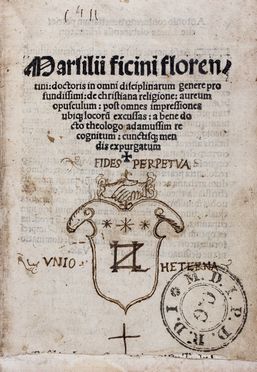 Marsilii ficini floren⸗
tini: doctoris in omni disciplinarum genere pro
fundissimi: de christiana religione: aureum
opusculum: post omnes impressiones
ubiq; locorū excussas: a bene do
cto theologo adamussim re
cognitum: cunctisq; men
dis expurgatum
FIDES PERPETVA
VNIO HETERNA
M. D. I. P. D. R. D. I.
C. G.